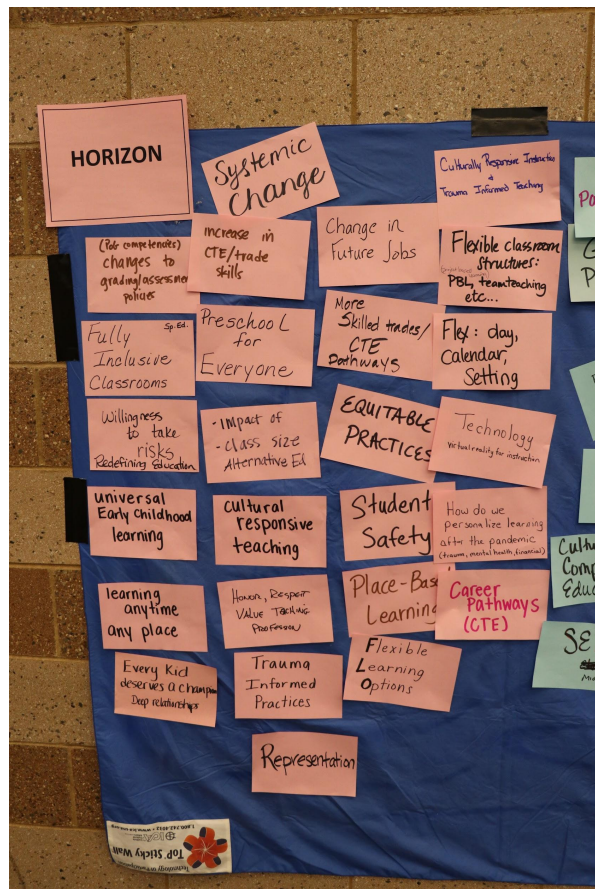 HORIZON
Systemic
Change
Culturally Responsive Instruction
&
Trauma Informed Teaching
(Por competencies)
changes to
grading/assessment
policies
increase in
CTE/trade
skills
Change in
Future Jobs
Flexible classroom
structures:
PBL, teamteaching
etc...
Sp. Ed.
Fully
Inclusive
Classrooms
Preschool
for
Everyone
More
Skilled trades/
CTE
Pathways
Flex: day,
Calendar,
Setting
Willingness
to take
risks
Redefining Education
- Impact of
- Class size
Alternative Ed
EQUITABLE
PRACTICES
Technology
Virtual reality for instruction
universal
Early Childhood
learning
cultural
responsive
teaching
Student
Safety
How do we
personalize learning
after the pandemic
(trauma, mental health, financial)
learning
anytime
any place
Honor, Respect
Value Teaching
Profession
Place-Base
Learning
Career
Pathways
(CTE)
Every Kid
deserves a champion
Deep relationships
Trauma
Informed
Practices
Flexible
Learning
Options
Representation
Cultu
Comp
Educ
SE
Mid
ToP® Sticky Wall